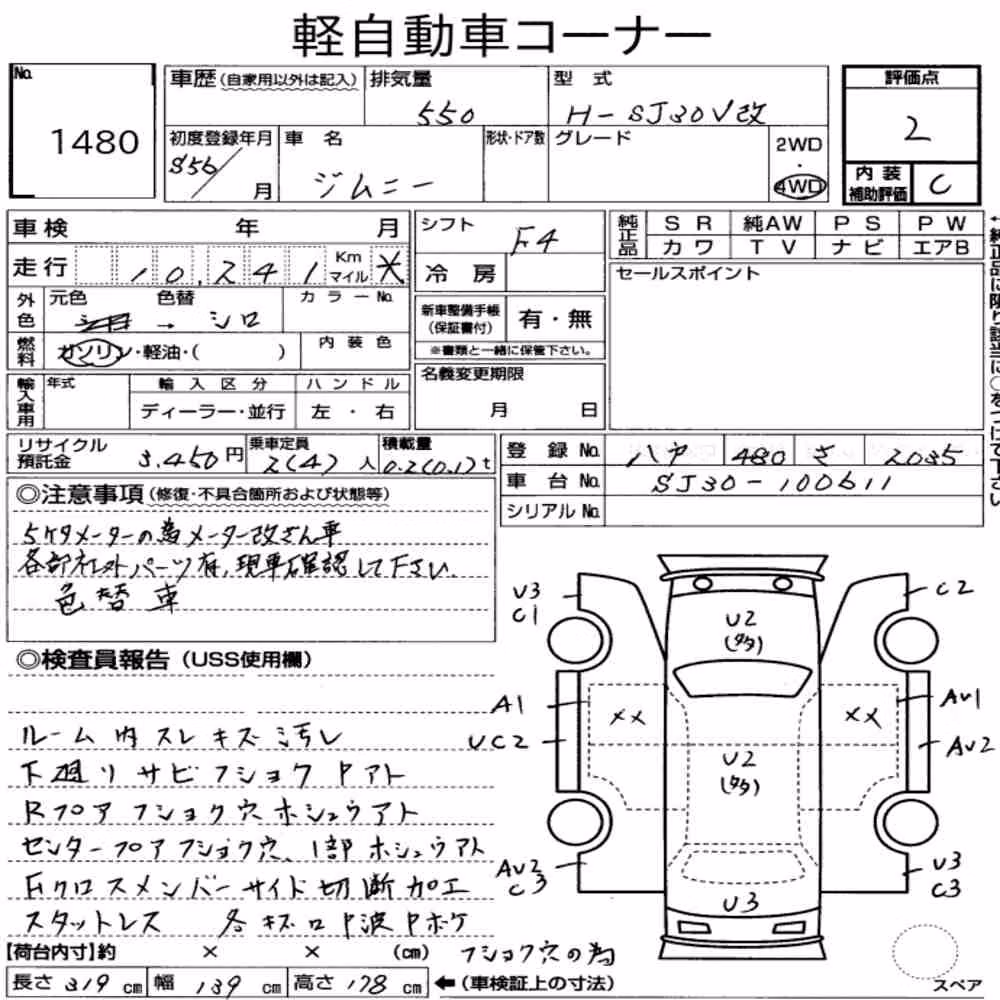 軽自動車コーナー
No. 1480
車歴(自家用以外は記入) 排気量 550 型式 H-SJ30V改
初度登録年月 S56/ 月 車名 ジムニー 形状・ドア数 グレード 2WD・4WD
評価点 2
内装補助評価 C
車検 年 月
走行 10,241 Km マイル *
外色 元色 → 色替 シロ カラーNo.
燃料 ガソリン・軽油・( ) 内装色
輸入車用 年式 輸入区分 ディーラー・並行 ハンドル 左・右
シフト F4
冷房
新車整備手帳(保証書付) 有・無
※書類と一緒に保管下さい。
名義変更期限 月 日
純正品 SR 純AW PS PW
カワ TV ナビ エアB
セールスポイント
リサイクル預託金 3,450円 乗車定員 2(4)人 積載量 0.2(0.1)t
登録No. ハヤ 480 さ 2035
車台No. SJ30-100611
シリアルNo.
◎注意事項(修復・不具合箇所および状態等)
5ケタメーターの為メーター改ざん車
各部社外パーツ有,現車確認して下さい.
色替車
◎検査員報告(USS使用欄)
ルーム内スレキズ汚レ
下廻りサビフショクPアト
Rフロアフショク穴ホシュウアト
センターフロアフショク穴、1部ホシュウアト
Fクロスメンバーサイド切断加工
スタットレス 各キズロP波Pボケ
フショク穴の為
【荷台内寸】約 × × (cm)
長さ 319 cm 幅 139 cm 高さ 178 cm ←(車検証上の寸法)
U3
C1
C2
U2
(タタ)
A1
UC2
××
××
AU1
AU2
U2
(タタ)
AU2
C3
U3
U3
C3
スペア